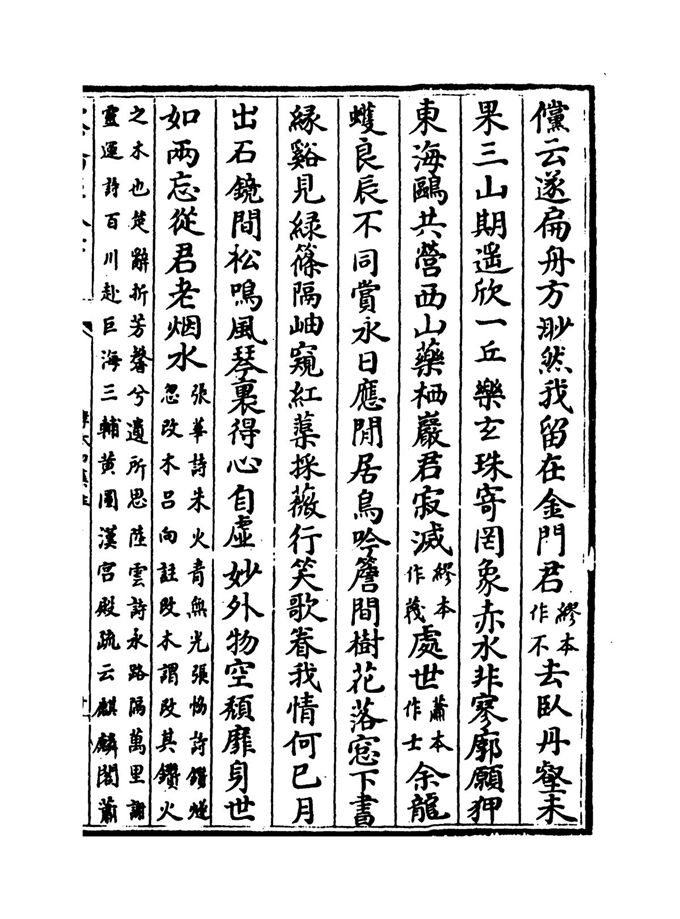 儻云遂扁舟方渺然我留在金門君繆本作不去臥丹壑未
果三山期遥欣一丘樂玄珠寄罔象赤水非寥廓願狎
東海鷗共營西山藥栖巖君寂滅繆本作蔑處世蕭本作士余龍
蠖良辰不同賞永日應閒居鳥吟簷間樹花落窓下書
緑谿見緑篠隔岫窺紅蕖採薇行笑歌眷我情何已月
出石鏡間松鳴風琴裏得心自虚妙外物空頽靡身世
如兩忘從君老烟水張華詩朱火青無光張協詩鑽燧忽改木吕向註改木謂改其鑽火
之木也楚辭折芳馨兮遺所思陸雲詩永路隔萬里謝
靈運詩百川赴巨海三輔黄圖漢宫殿疏云麒麟閣蕭